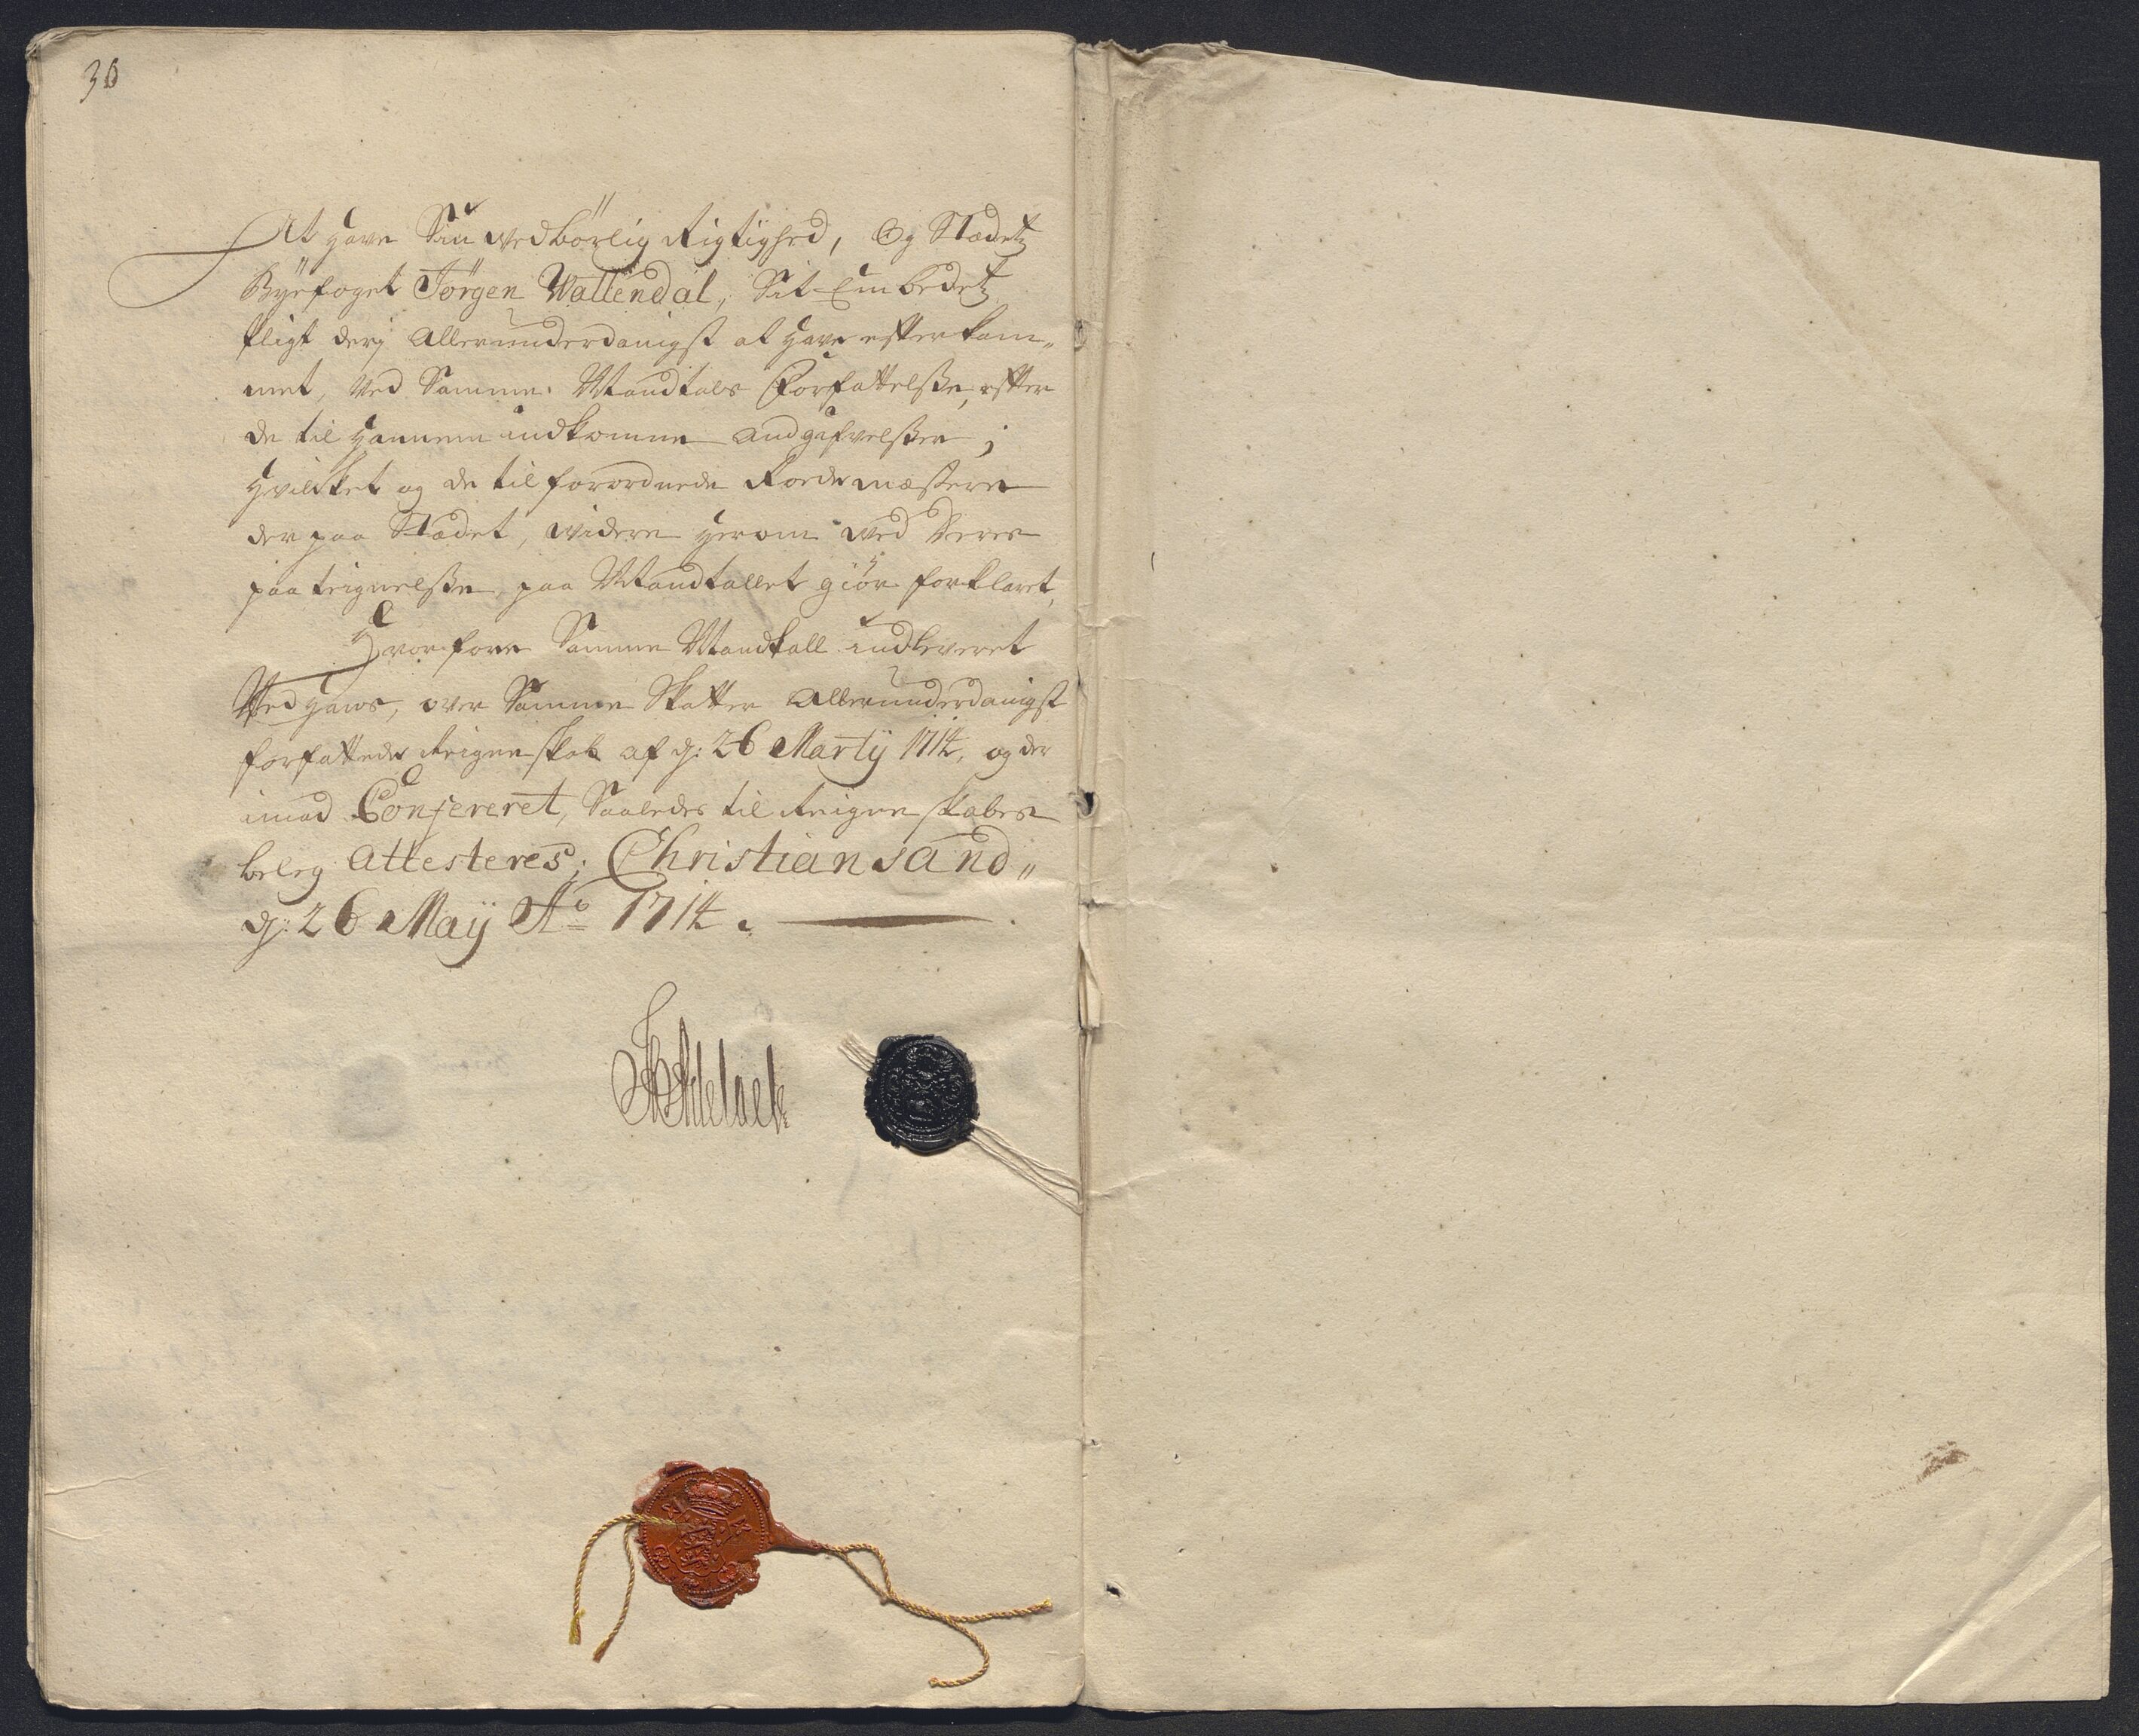 36
At have Sin vedbörlig Rigtighed, Og Stædetz
Byefoget Jörgen Wallendal, Sit Embedetz
Pligt derj Allerunderdanigst at have efterkom„
met, Ved Samme Mandtals Forfattelße, efter
de til hannem indkomne andgifvelßer;
Hvilcket og de tilforordnede Rodemæstere
der paa Stædet, videre herom ved Deres
paateignelße paa Mandtallet giör forklaret,
Hvorfore Samme Mandtall indleveret
Ved hans, over Samme Skatter Allerunderdanigst
forfattede Reignenskab af d: 26 Martij 1714, og der
imod Confereret, Saaledes til Reignenskabes
beleg Attesteres; Christiansand„
d: 26 Maij Ao 1714.